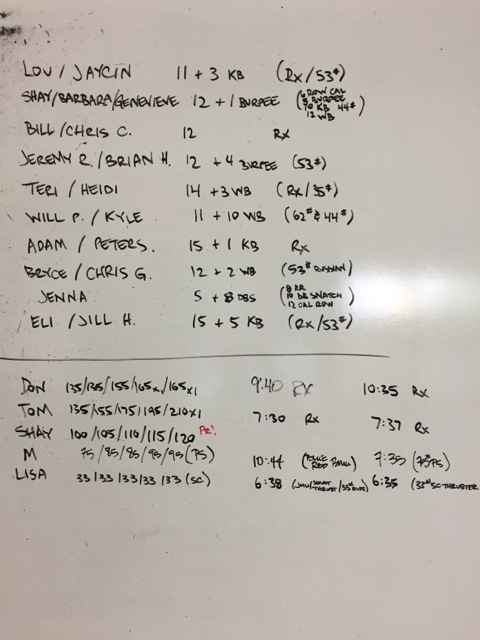 LOU / JAYCIN 11 + 3 KB (RX/53#)
SHAY/BARBARA/GENEVIEVE 12 + 1 BURPEE (6 ROW CAL
8 BURPEE
10 KB 44#
12 WB)
BILL/CHRIS C. 12 RX
JEREMY R./BRIAN H. 12 + 4 BURPEE (53#)
TERI / HEIDI 14 + 3 WB (RX/35#)
WILL P. / KYLE 11 + 10 WB (62# & 44#)
ADAM / PETERS. 15 + 1 KB RX
BRYCE / CHRIS G. 12 + 2 WB (53# RUSSIAN)
JENNA 5 + 8 DBS (8 RR
10 DB SNATCH
12 CAL ROW)
ELI / JILL H. 15 + 5 KB (RX/53#)
DON 135/135/155/165x1/165x1 9:40 RX 10:35 RX
TOM 135/155/175/195/210x1 7:30 RX 7:37 RX
SHAY 100/105/110/115/120 PR!
M 75/85/85/95/95 (PS) 10:44 (BLUE
RED BAND) 7:35 (75# PS)
LISA 33/33/33/33/33 (SC) 6:38 6:35 (33# SC-THRUSTER